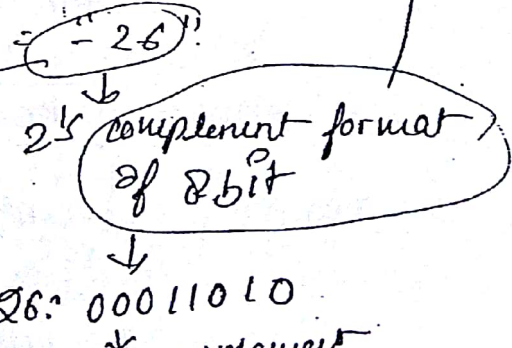 = "-26".
↓
2's complement format
of 8bit
↓
26: 00011010